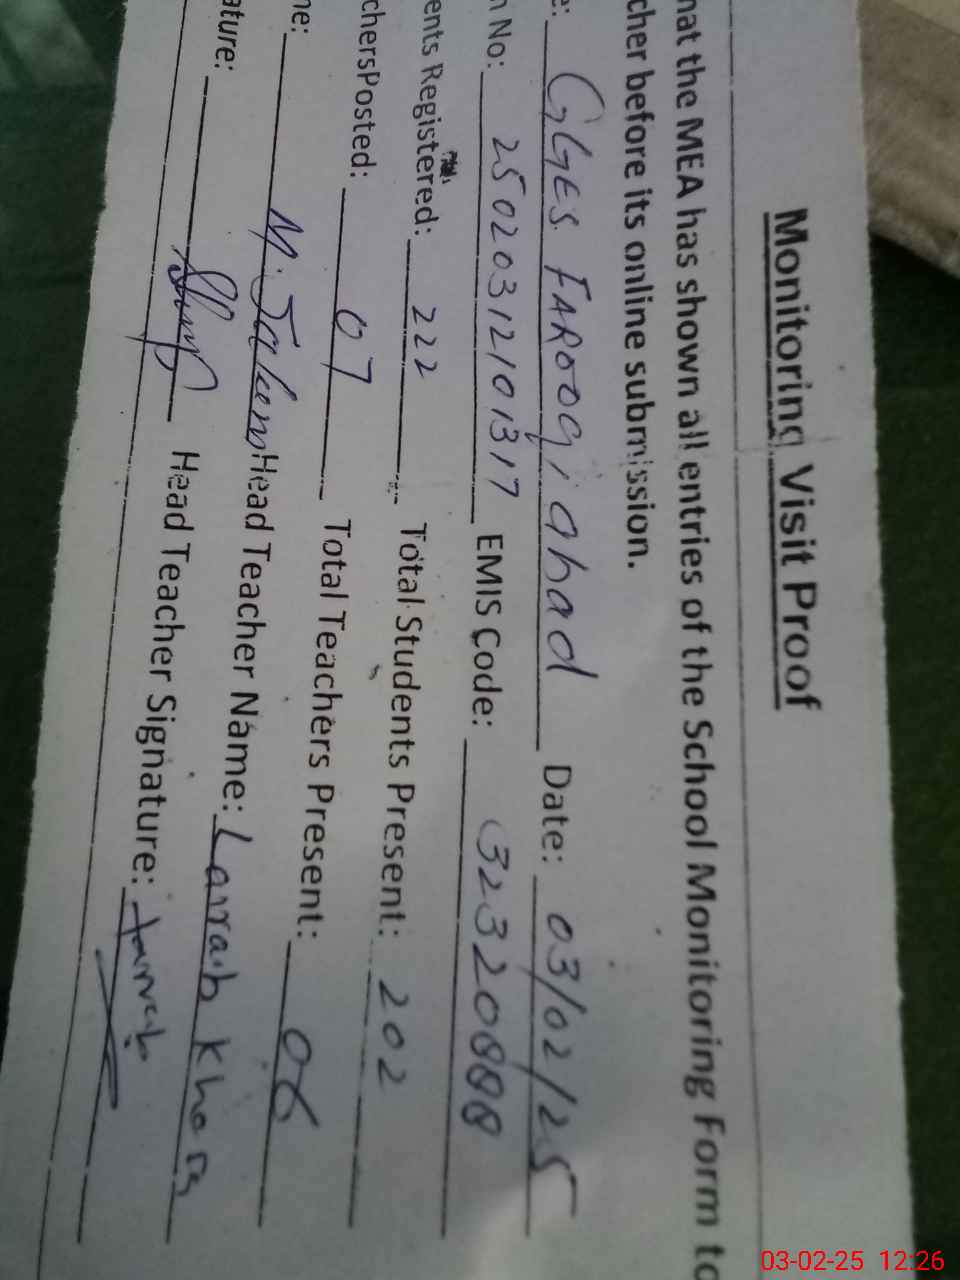 Monitoring Visit Proof
hat the MEA has shown all entries of the School Monitoring Form to
cher before its online submission.
e: GGES. FAROOQ, abad Date: 03/02/25
n No: 2502031210131 7 EMIS Code: 32320888
ents Registered: 222 Total Students Present: 202
chersPosted: 07 Total Teachers Present: 06
me: M. Saleem Head Teacher Name: Larraib Khosa
ature: Head Teacher Signature:
03-02-25 12:26